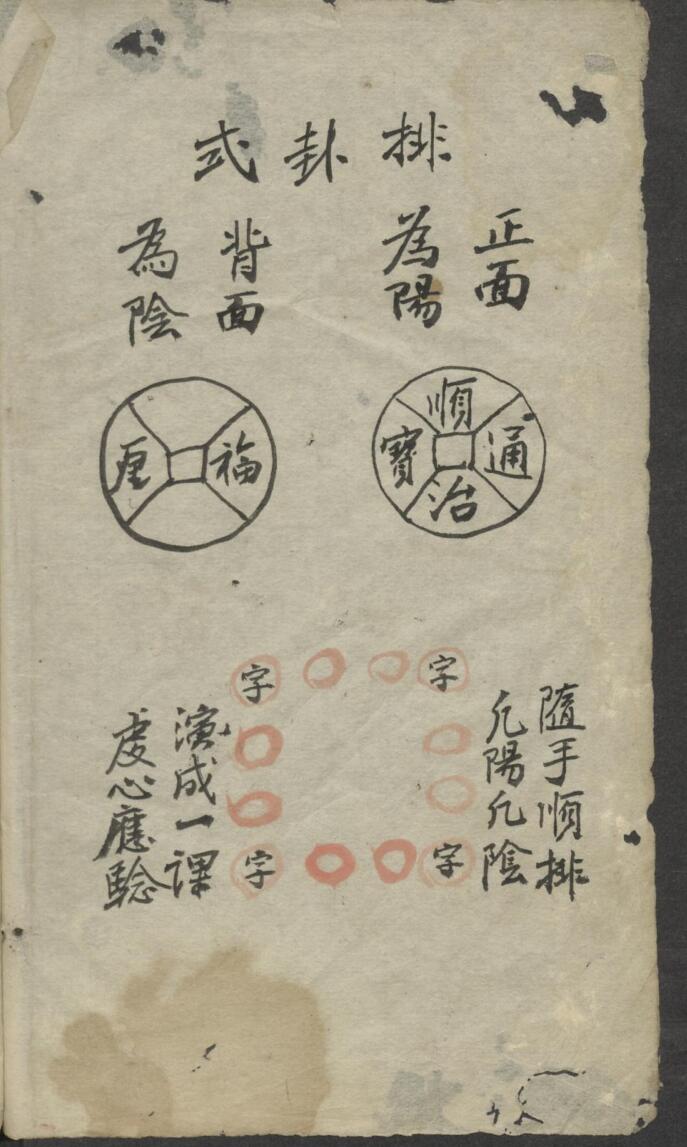 排卦式
正面
為陽
背面
為陰
順治通寶
福厘
隨手順排
几陽几陰
字
字
字
字
演成一課
虔心應驗